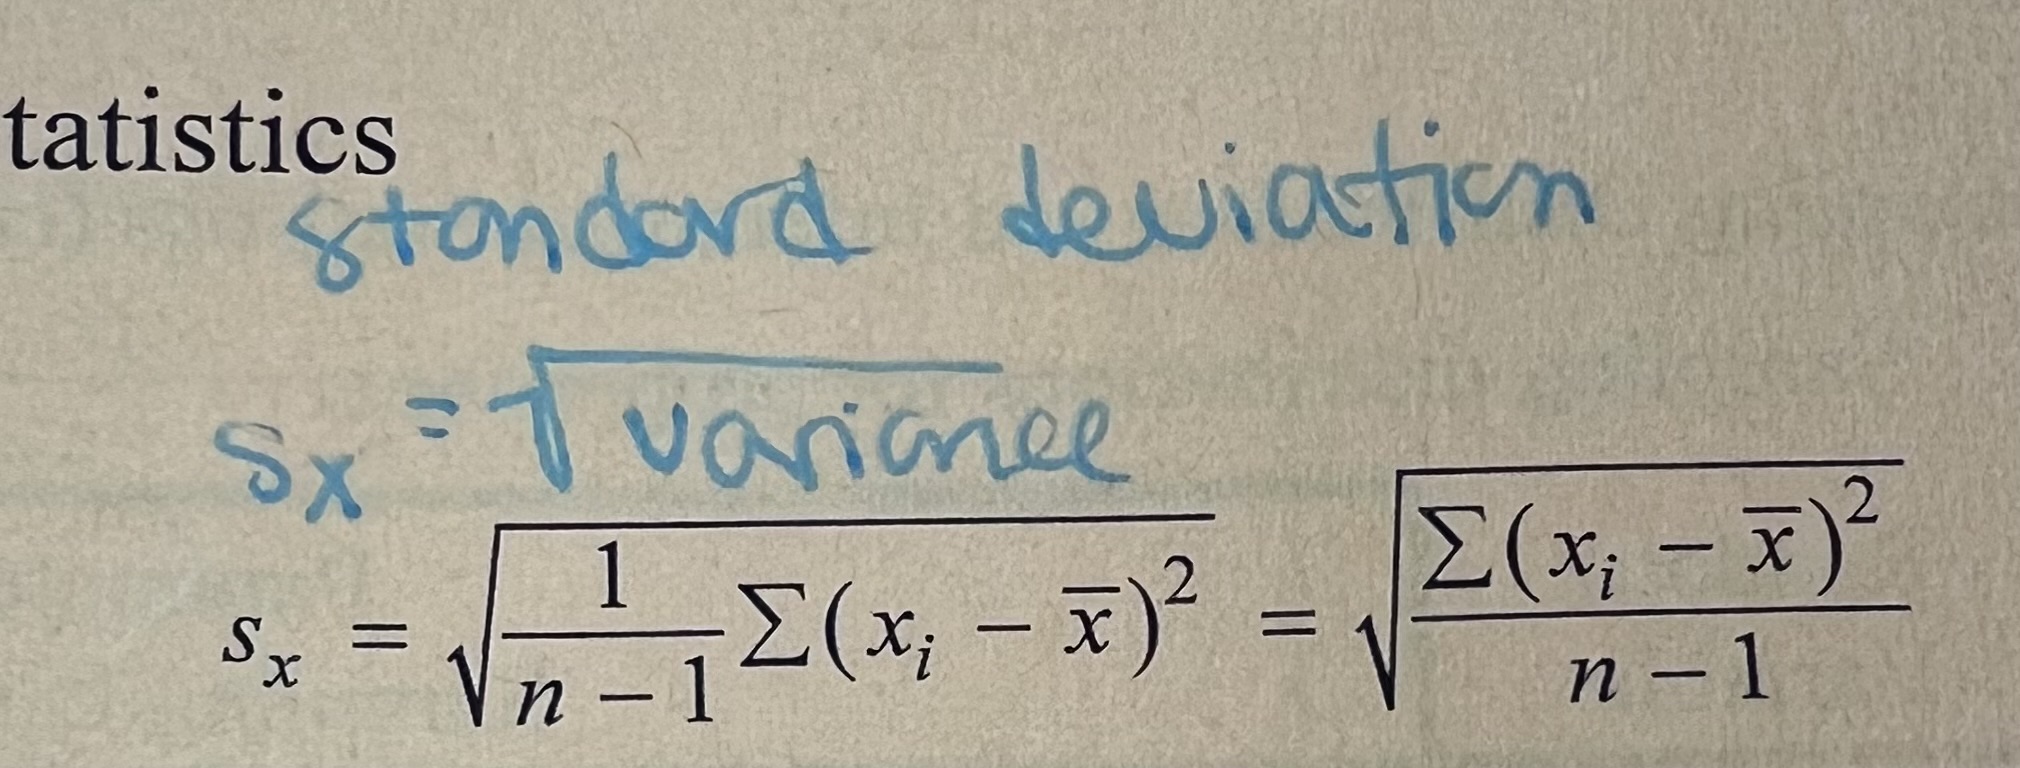 tatistics
standard deviation
s_x = √variance
s_x = √(1/(n − 1) Σ(x_i − x̄)²) = √(Σ(x_i − x̄)²/(n − 1))